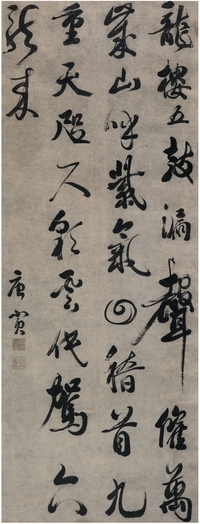 龍樓五鼓漏聲催萬
歲山呼氣回稽首九
重天咫尺彩雲駕六
龍來
唐寅